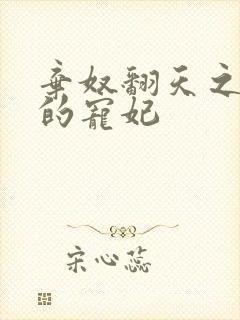 弃奴翻天之
的宠妃
宋心蕊